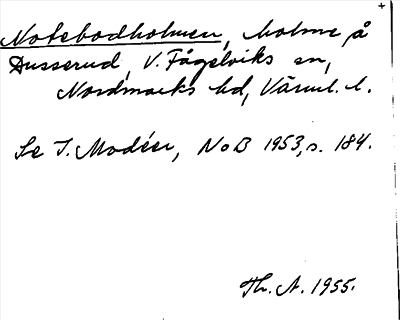 Notebodholmen, holme å
Dusserud, V. Fågelviks sn,
Nordmarks hd, Värml. l.
Se I. Modéer, NoB 1953, s. 184.
Th. A. 1955.